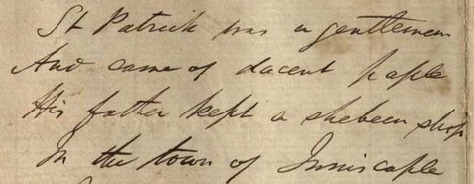 St Patrick was a gentleman
And came of dacent paple
His father kept a shebeen shop
In the town of Inniscaple